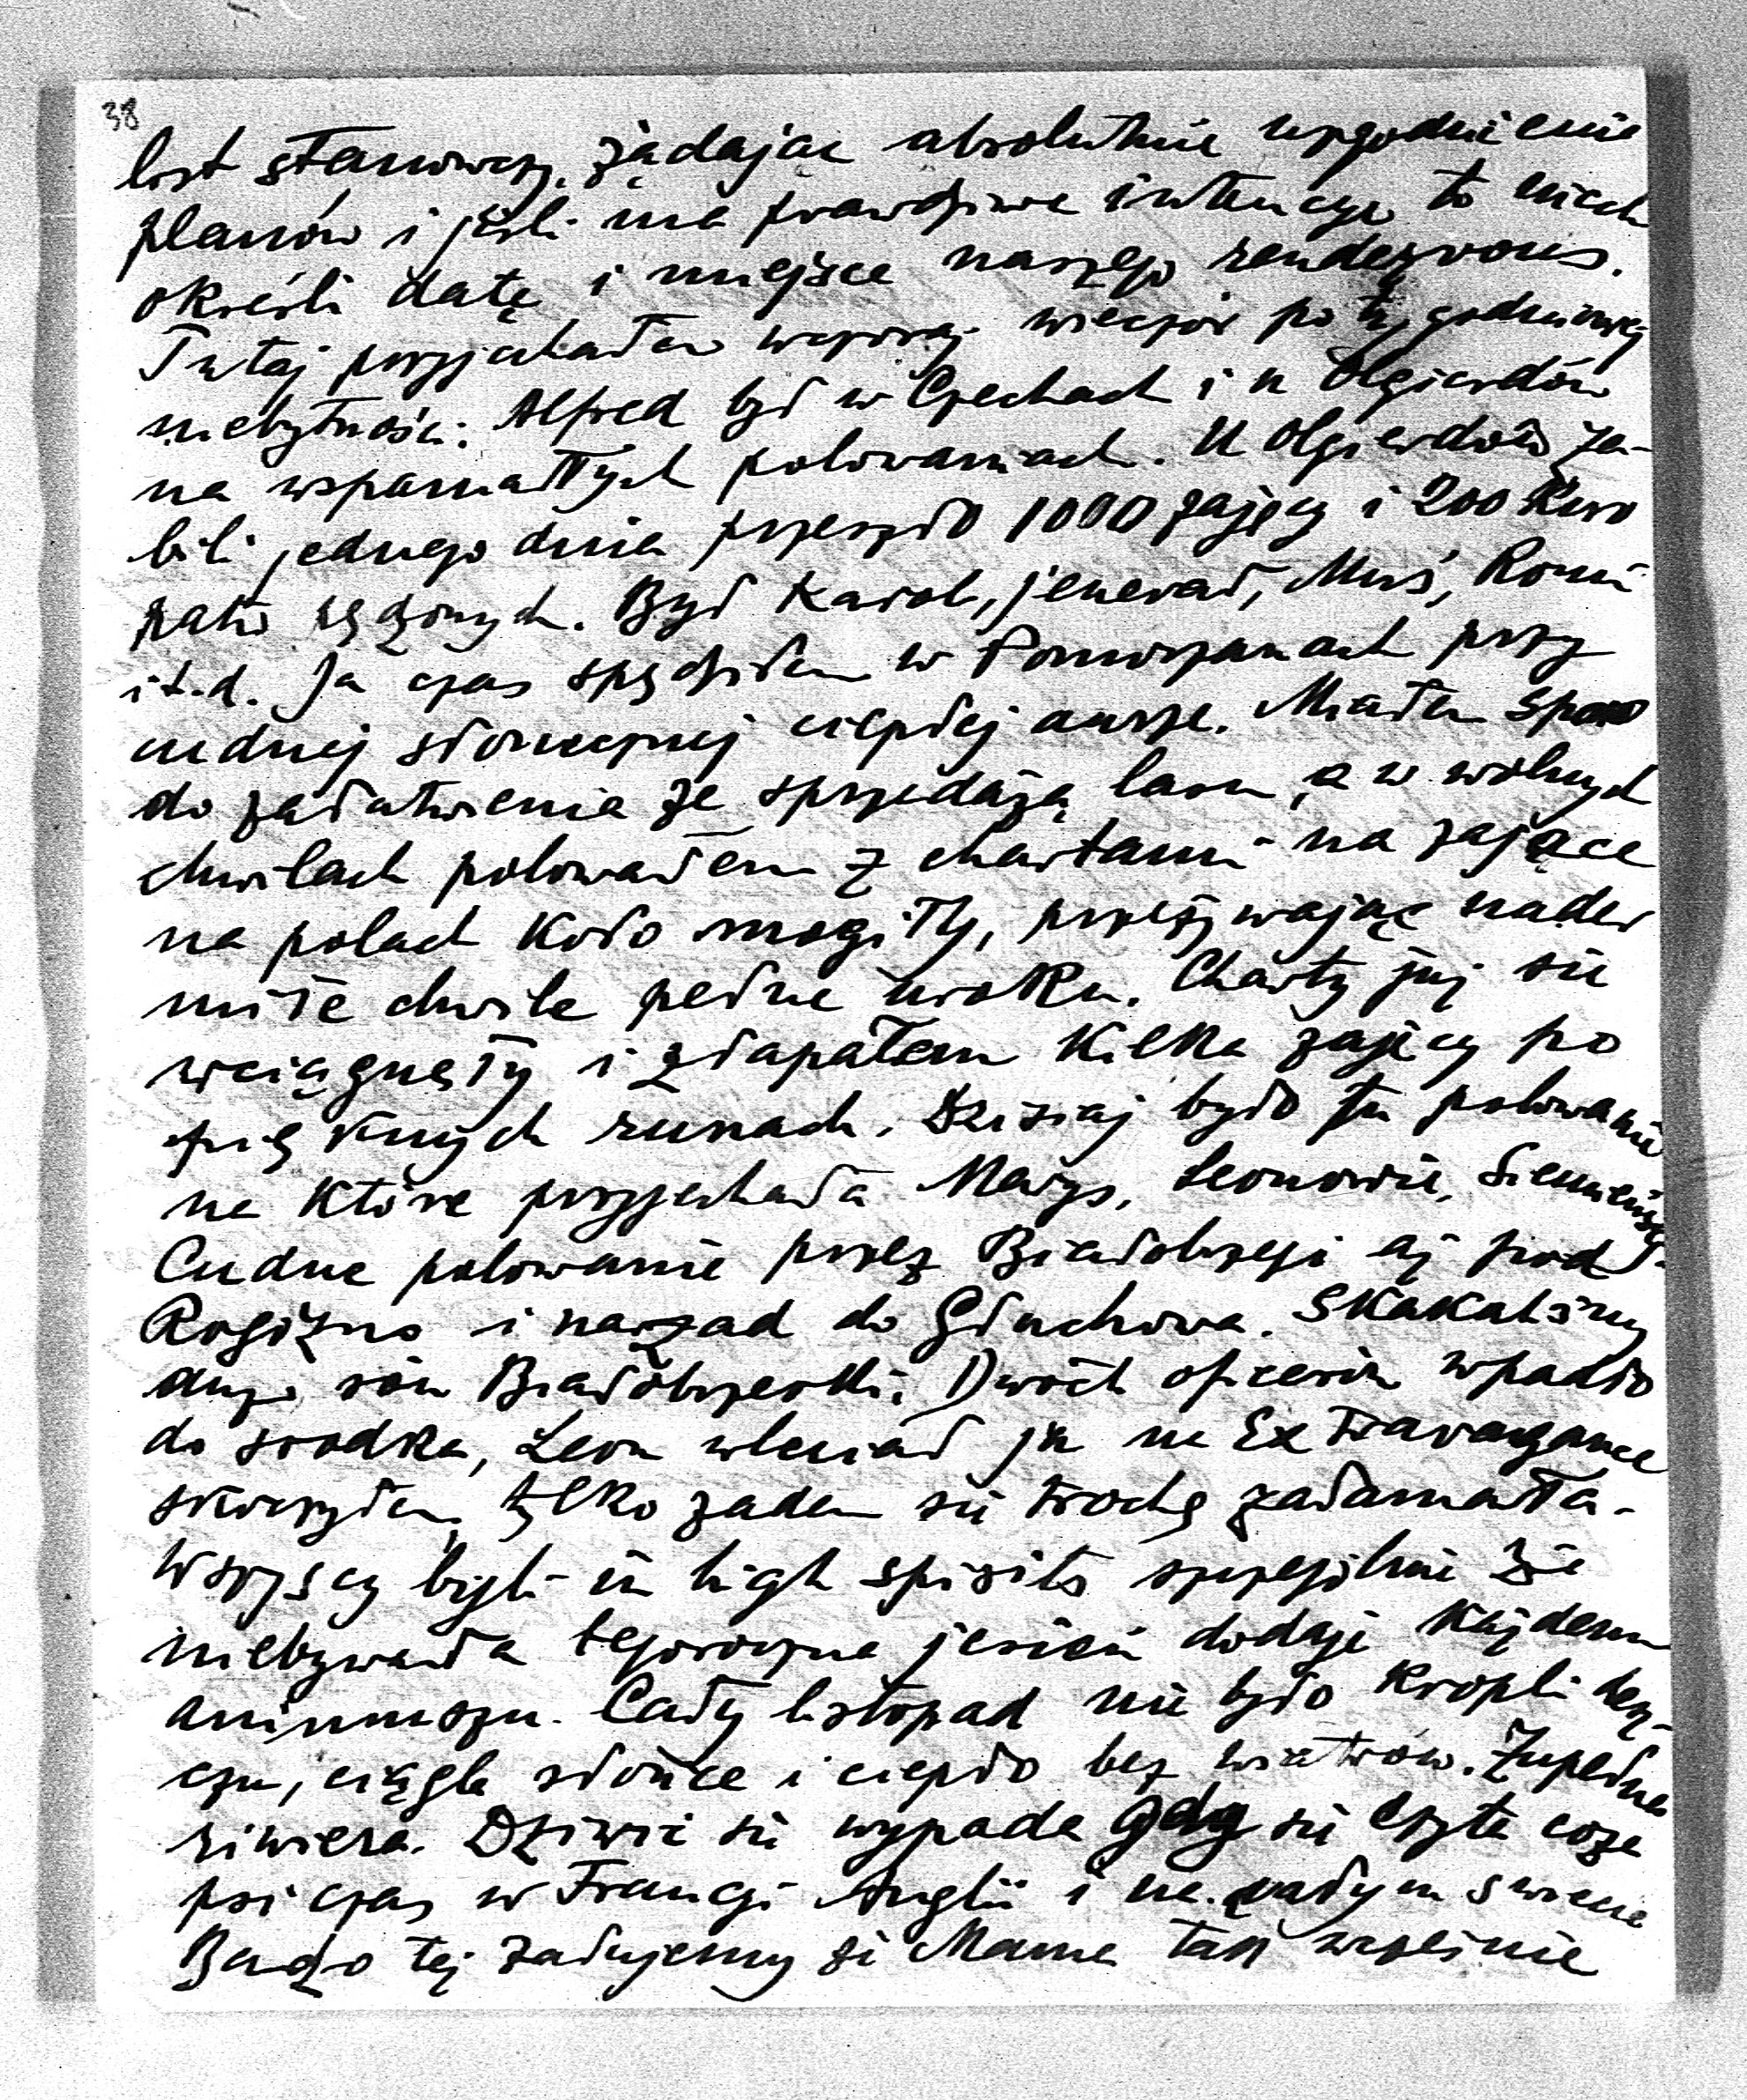 38
list stanowczy, żądając absolutnie uzgodnienie
planów i jeśli ma prawdziwe intencye to niech
określi datę i miejsce naszego rendezvous.
Tutaj przyjechałem wczoraj wieczór po tygodniowej
niebytności. Alfred był w Czechach i u Olgierdów
na wspaniałych polowaniach. U Olgierdów za-
bili jednego dnia przeszło 1000 zajęcy i 200 kuro
patw pędzonych. Był Karol, jenerał, Muś, Romi
i t.d. Ja czas spędziłem w Pomorzanach przy
cudnej słonecznej ciepłej aurze. Miałem sporo
do załatwienia ze sprzedażą lasu, a w wolnych
chwilach polowałem z chartami na zające
na polach koło mogiły, przeżywając nader
miłe chwile pełne uroku. Charty już się
wciągnęły i złapałem kilka zajęcy po
pięknych runach. Dzisiaj było tu polowanie
na które przyjechała Marys, Leonowie,
Cudne polowanie przez Białobrzegi aż pod
Rogóżno i nazad do Głuchowa. Skakaliśmy
duży rów Białobrzeski. Dwóch oficerów wpadło
do środka, Leon wleciał ja na Extravagance
skoczyłem, tylko zadem się trochę załamała.
Wszyscy byli in high spirits szczególnie że
niebywała tegoroczna jesień dodaje każdemu
animuszu. Cały listopad nie było kropli desz-
czu, ciągle słońce i ciepło bez wiatrów. Zupełna
riwiera. Dziwić się wypada gdy się czyta co za
psi czas w Francji Anglii i na całym świecie
Bardzo też żałujemy że Mama tak wcześnie